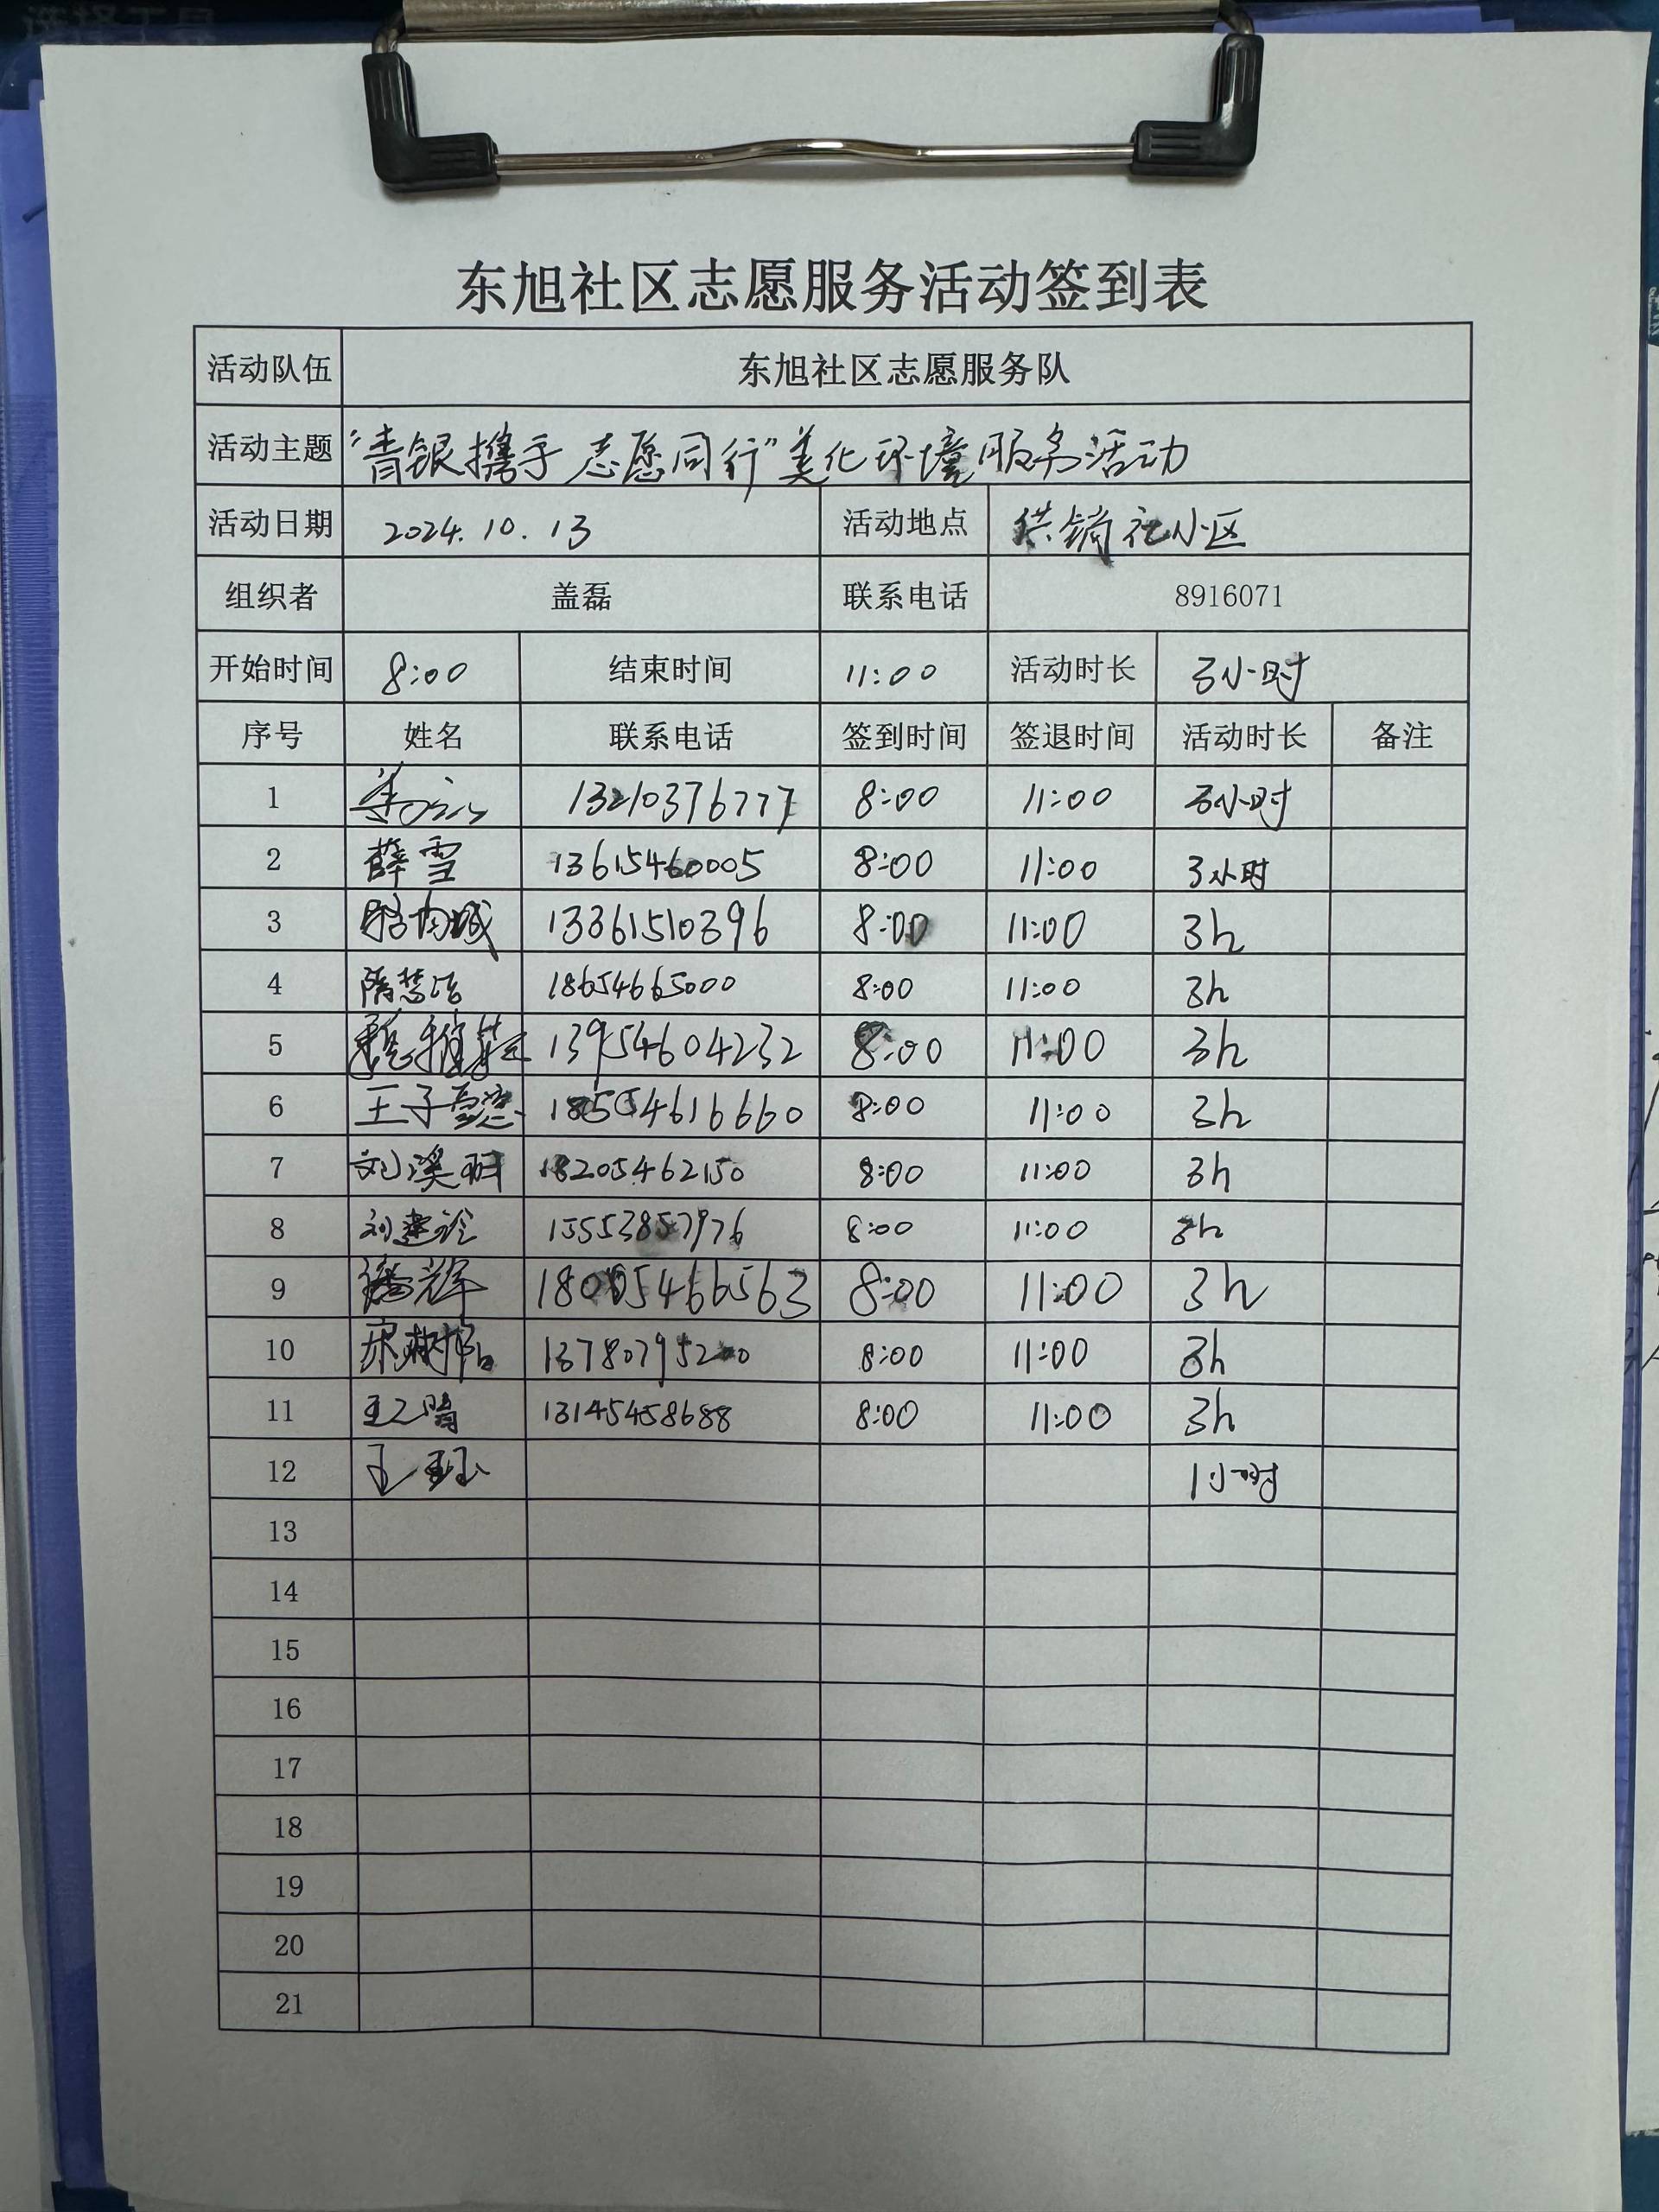 东旭社区志愿服务活动签到表
活动队伍 东旭社区志愿服务队
活动主题 “青银携手 志愿同行”美化环境服务活动
活动日期 2024.10.13 活动地点 供销社小区
组织者 盖磊 联系电话 8916071
开始时间 8:00 结束时间 11:00 活动时长 3小时
序号 姓名 联系电话 签到时间 签退时间 活动时长 备注
1 13210376777 8:00 11:00 3小时
2 薛雪 13615460005 8:00 11:00 3小时
3 13361510396 8:00 11:00 3h
4 18654665000 8:00 11:00 3h
5 13954604232 8:00 11:00 3h
6 王子 18554616660 8:00 11:00 3h
7 刘溪 18205462150 8:00 11:00 3h
8 刘建 15553857976 8:00 11:00 3h
9 辉 18005466563 8:00 11:00 3h
10 宋 13780795200 8:00 11:00 3h
11 13145458688 8:00 11:00 3h
12 王 1小时
13
14
15
16
17
18
19
20
21